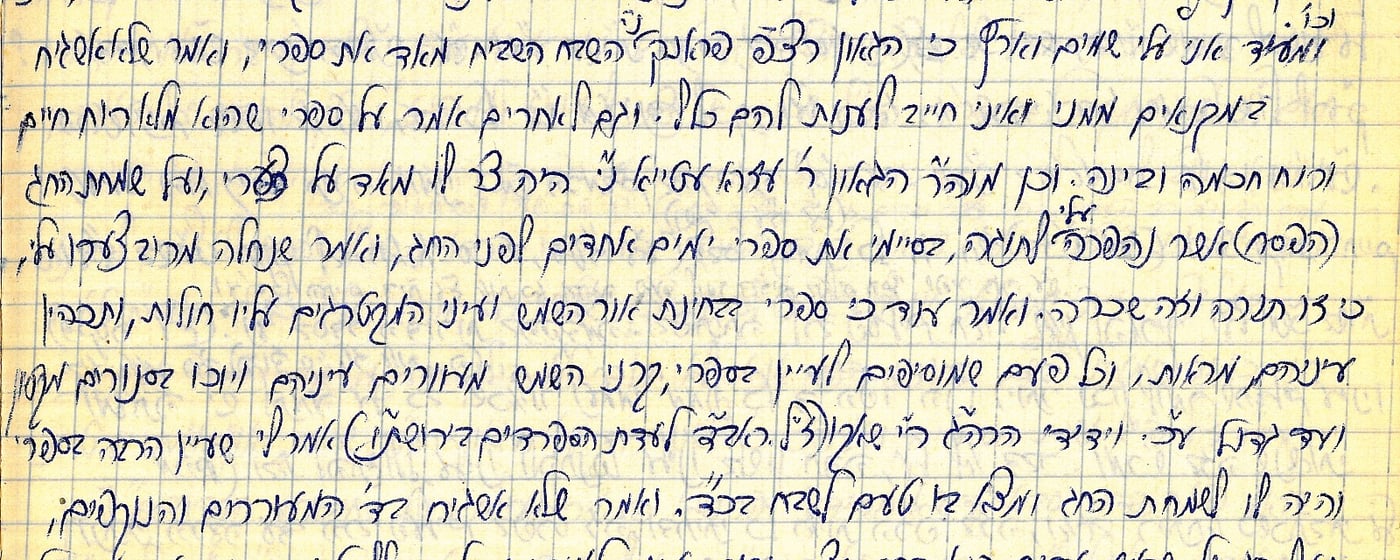 וכו'.
ומעיד אני עלי שמים וארץ כי הגאון רצ"פ פראנק נ"י השבח השביח מאד את ספרי, ואמר שלא אשגיח
במקנאים ממני ואיני חייב לענות להם כלל. וגם לאחרים אמר על ספרי שהוא מלא רוח חיים
ורוח חכמה ובינה. וכן מוהר"ר הגאון ר' עזרא עטייא נ"י היה צר לו מאד על צערי, ועל שמחת החג
(הפסח) אשר נהפכה עלי לתוגה, בסיימי את ספרי ימים אחדים לפני החג, ואמר שנחלה מרוב צערו עלי,
כי זו תורה וזה שכרה. ואמר עוד כי ספרי בבחינת אור השמש ועיני המקטרגים עליו חולות, ותכהין
עיניהם, מראות, וכל פעם שמוסיפים לעיין בספרי, קרני השמש מעוורים עיניהם ויוכו בסנורים מקטון
ועד גדול ע"כ. וידידי הרה"ג ר"י שאקו (ז"ל. ראב"ד לעדת הספרדים בירושת"ו) אמר לי שעיין הרבה בספרי
והיה לו לשמחת החג ומצא בו טעם לשבח בכ"ד. ואמר שלא אשגיח בד' המעוררים והנוקפים,